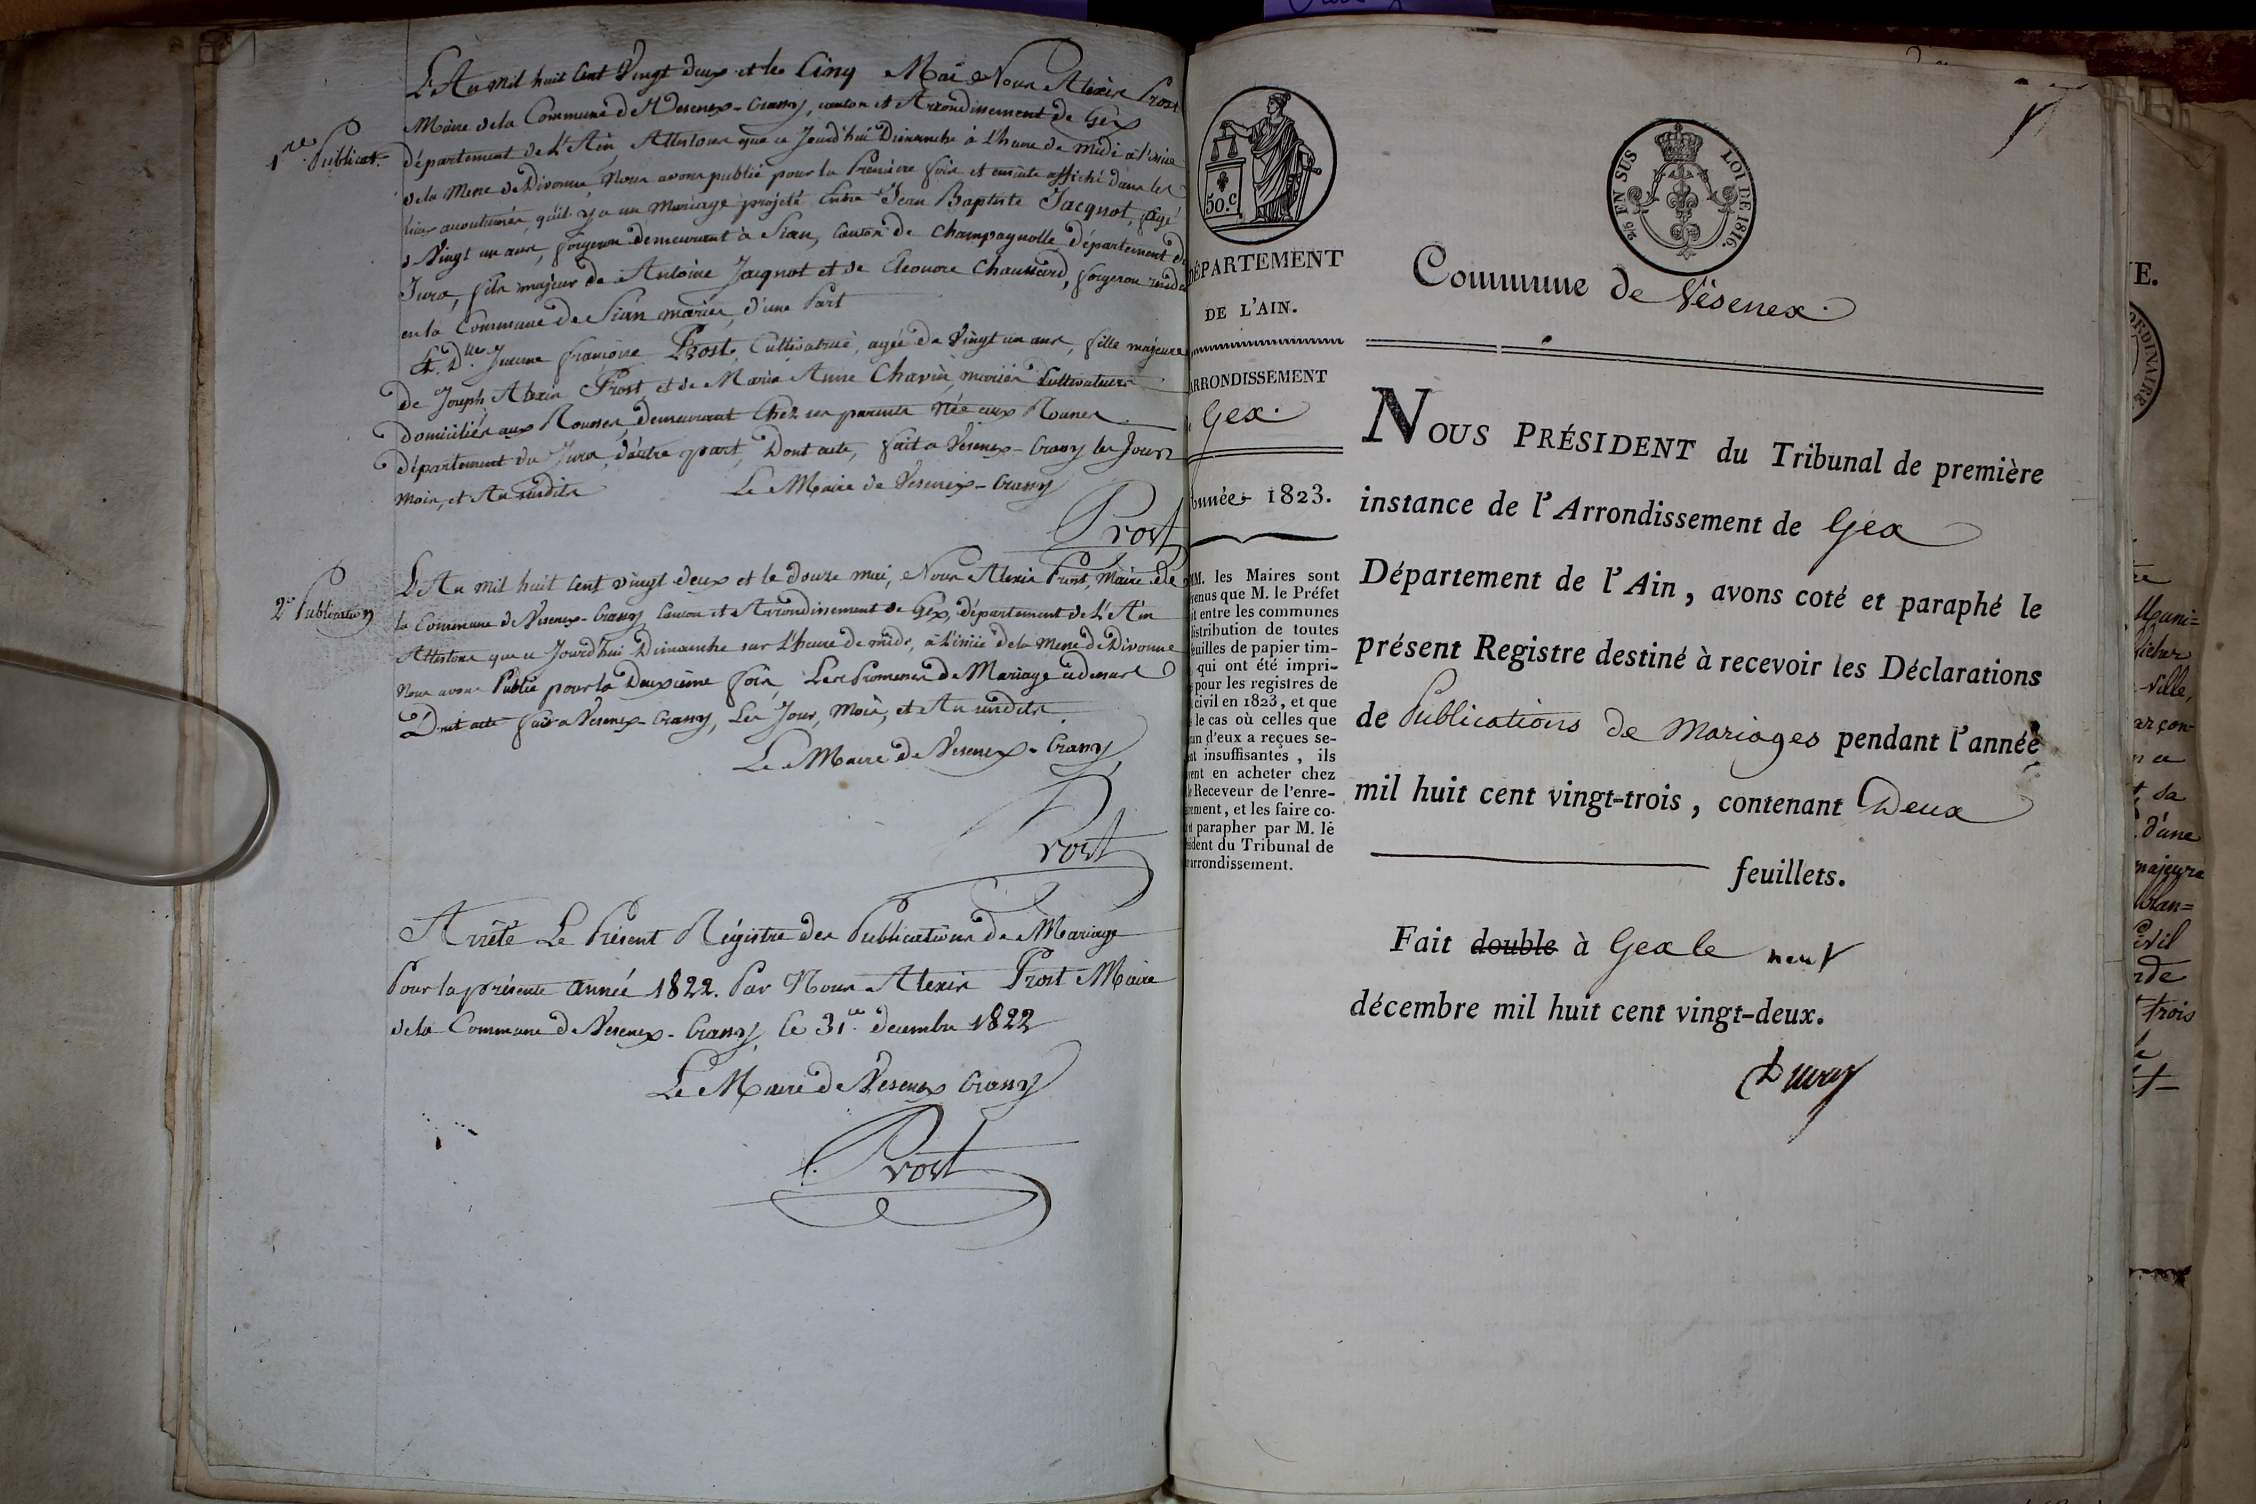 L'An mil huit Cent Vingt deux et le Cinq Mai Nous Alexis Prost
Maire de la Commune de Vesenex-Crassy, canton et Arrondissement de Gex
1re Publicat.
département de L'Ain, Attestons que ce Jourd'hui Dimanche à L'heure de midi à l'issue
de la Messe de Divonne, Nous avons publié pour la Première fois et ensuite affiché dans les
lieux accoutumés, qu'il y a un Mariage projeté Entre Jean Baptiste Jacquot, agé
de Vingt un ans, forgeron demeurant à Sian, Canton de Champagnolle département du
Jura, fils majeur de Antoine Jacquot et de Eleonore Chaussard, forgeron
en la Commune de Sian mariés, d'une Part
Et Dlle Jeanne françoise Prost, Cultivatrice, agée de Vingt un ans, fille majeure
de Joseph Alexis Prost, et de Marie Anne Chavin, mariés Cultivateurs
domiciliés aux Rousses, demeurant Chez ses parents Née aux Rousses
département du Jura, d'autre part, Dont acte, fait à Vesenex-Crassy les Jour
mois, et An susdits
Le Maire de Vesenex-Crassy
Prost
2e Publication
L'An mil huit Cent vingt deux et le douze mai, Nous Alexis Prost, Maire de
la Commune de Vesenex-Crassy, Canton et Arrondissement de Gex, département de L'Ain
Attestons que ce Jourd'hui Dimanche sur L'heure de midi, à L'issue de la Messe de Divonne
Nous avons Publié pour la Deuxième fois, Les Promesses de Mariage cidessus
Dont acte fait à Vesenex-Crassy, Les Jour, Mois, et An susdits.
Le Maire de Vesenex-Crassy
Prost
Arrêté Le Présent Régistre des Publications de Mariage
Pour la présente année 1822. Par Nous Alexis Prost Maire
de la Commune de Vesenex-Crassy, le 31. decembre 1822
Le Maire de Vesenex Crassy
Prost
50.c
2/5 EN SUS LOI DE 1816.
DÉPARTEMENT
DE L'AIN.
ARRONDISSEMENT
Gex.
Année 1823.
MM. les Maires sont
venus que M. le Préfet
it entre les communes
distribution de toutes
feuilles de papier tim-
qui ont été impri-
pour les registres de
civil en 1823, et que
le cas où celles que
un d'eux a reçues se-
nt insuffisantes, ils
vent en acheter chez
le Receveur de l'enre-
rement, et les faire co-
et parapher par M. le
sident du Tribunal de
arrondissement.
Commune de Vésenex.
NOUS PRÉSIDENT du Tribunal de première
instance de l'Arrondissement de Gex
Département de l'Ain, avons coté et paraphé le
présent Registre destiné à recevoir les Déclarations
de Publications de Mariages pendant l'année
mil huit cent vingt-trois, contenant Deux
feuillets.
Fait double à Gex le neuf
décembre mil huit cent vingt-deux.